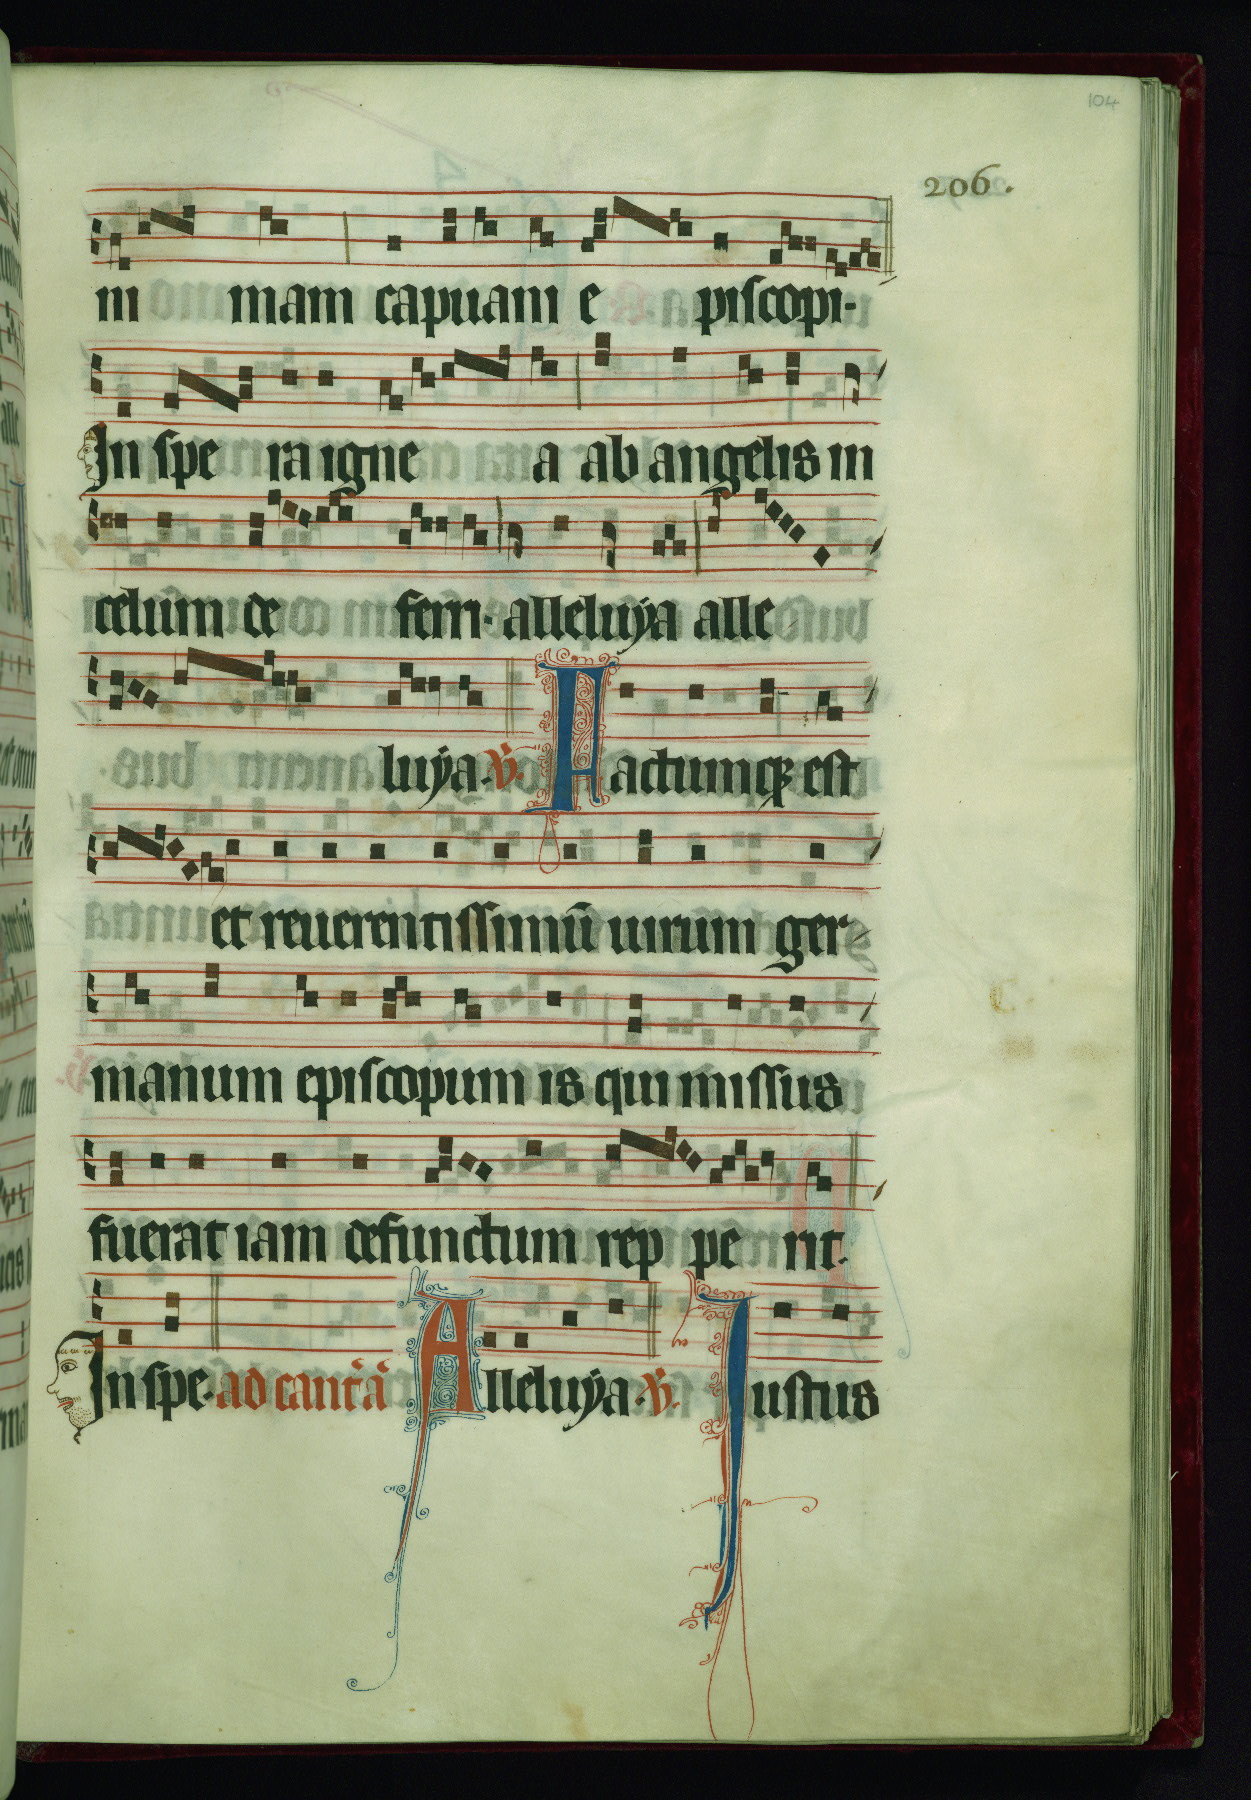 104
206.
ni mam capuani e piscopi-
In spe ra igne a ab angelis in
celum de ferri. alleluÿa alle
luÿa. V. Factumqꝫ est
et reuerentissimū uirum ger-
manum episcopum is qui missus
fuerat iam defunctum rep pe rit.
In spe. ad cant̄ā Alleluÿa. V. Iustus